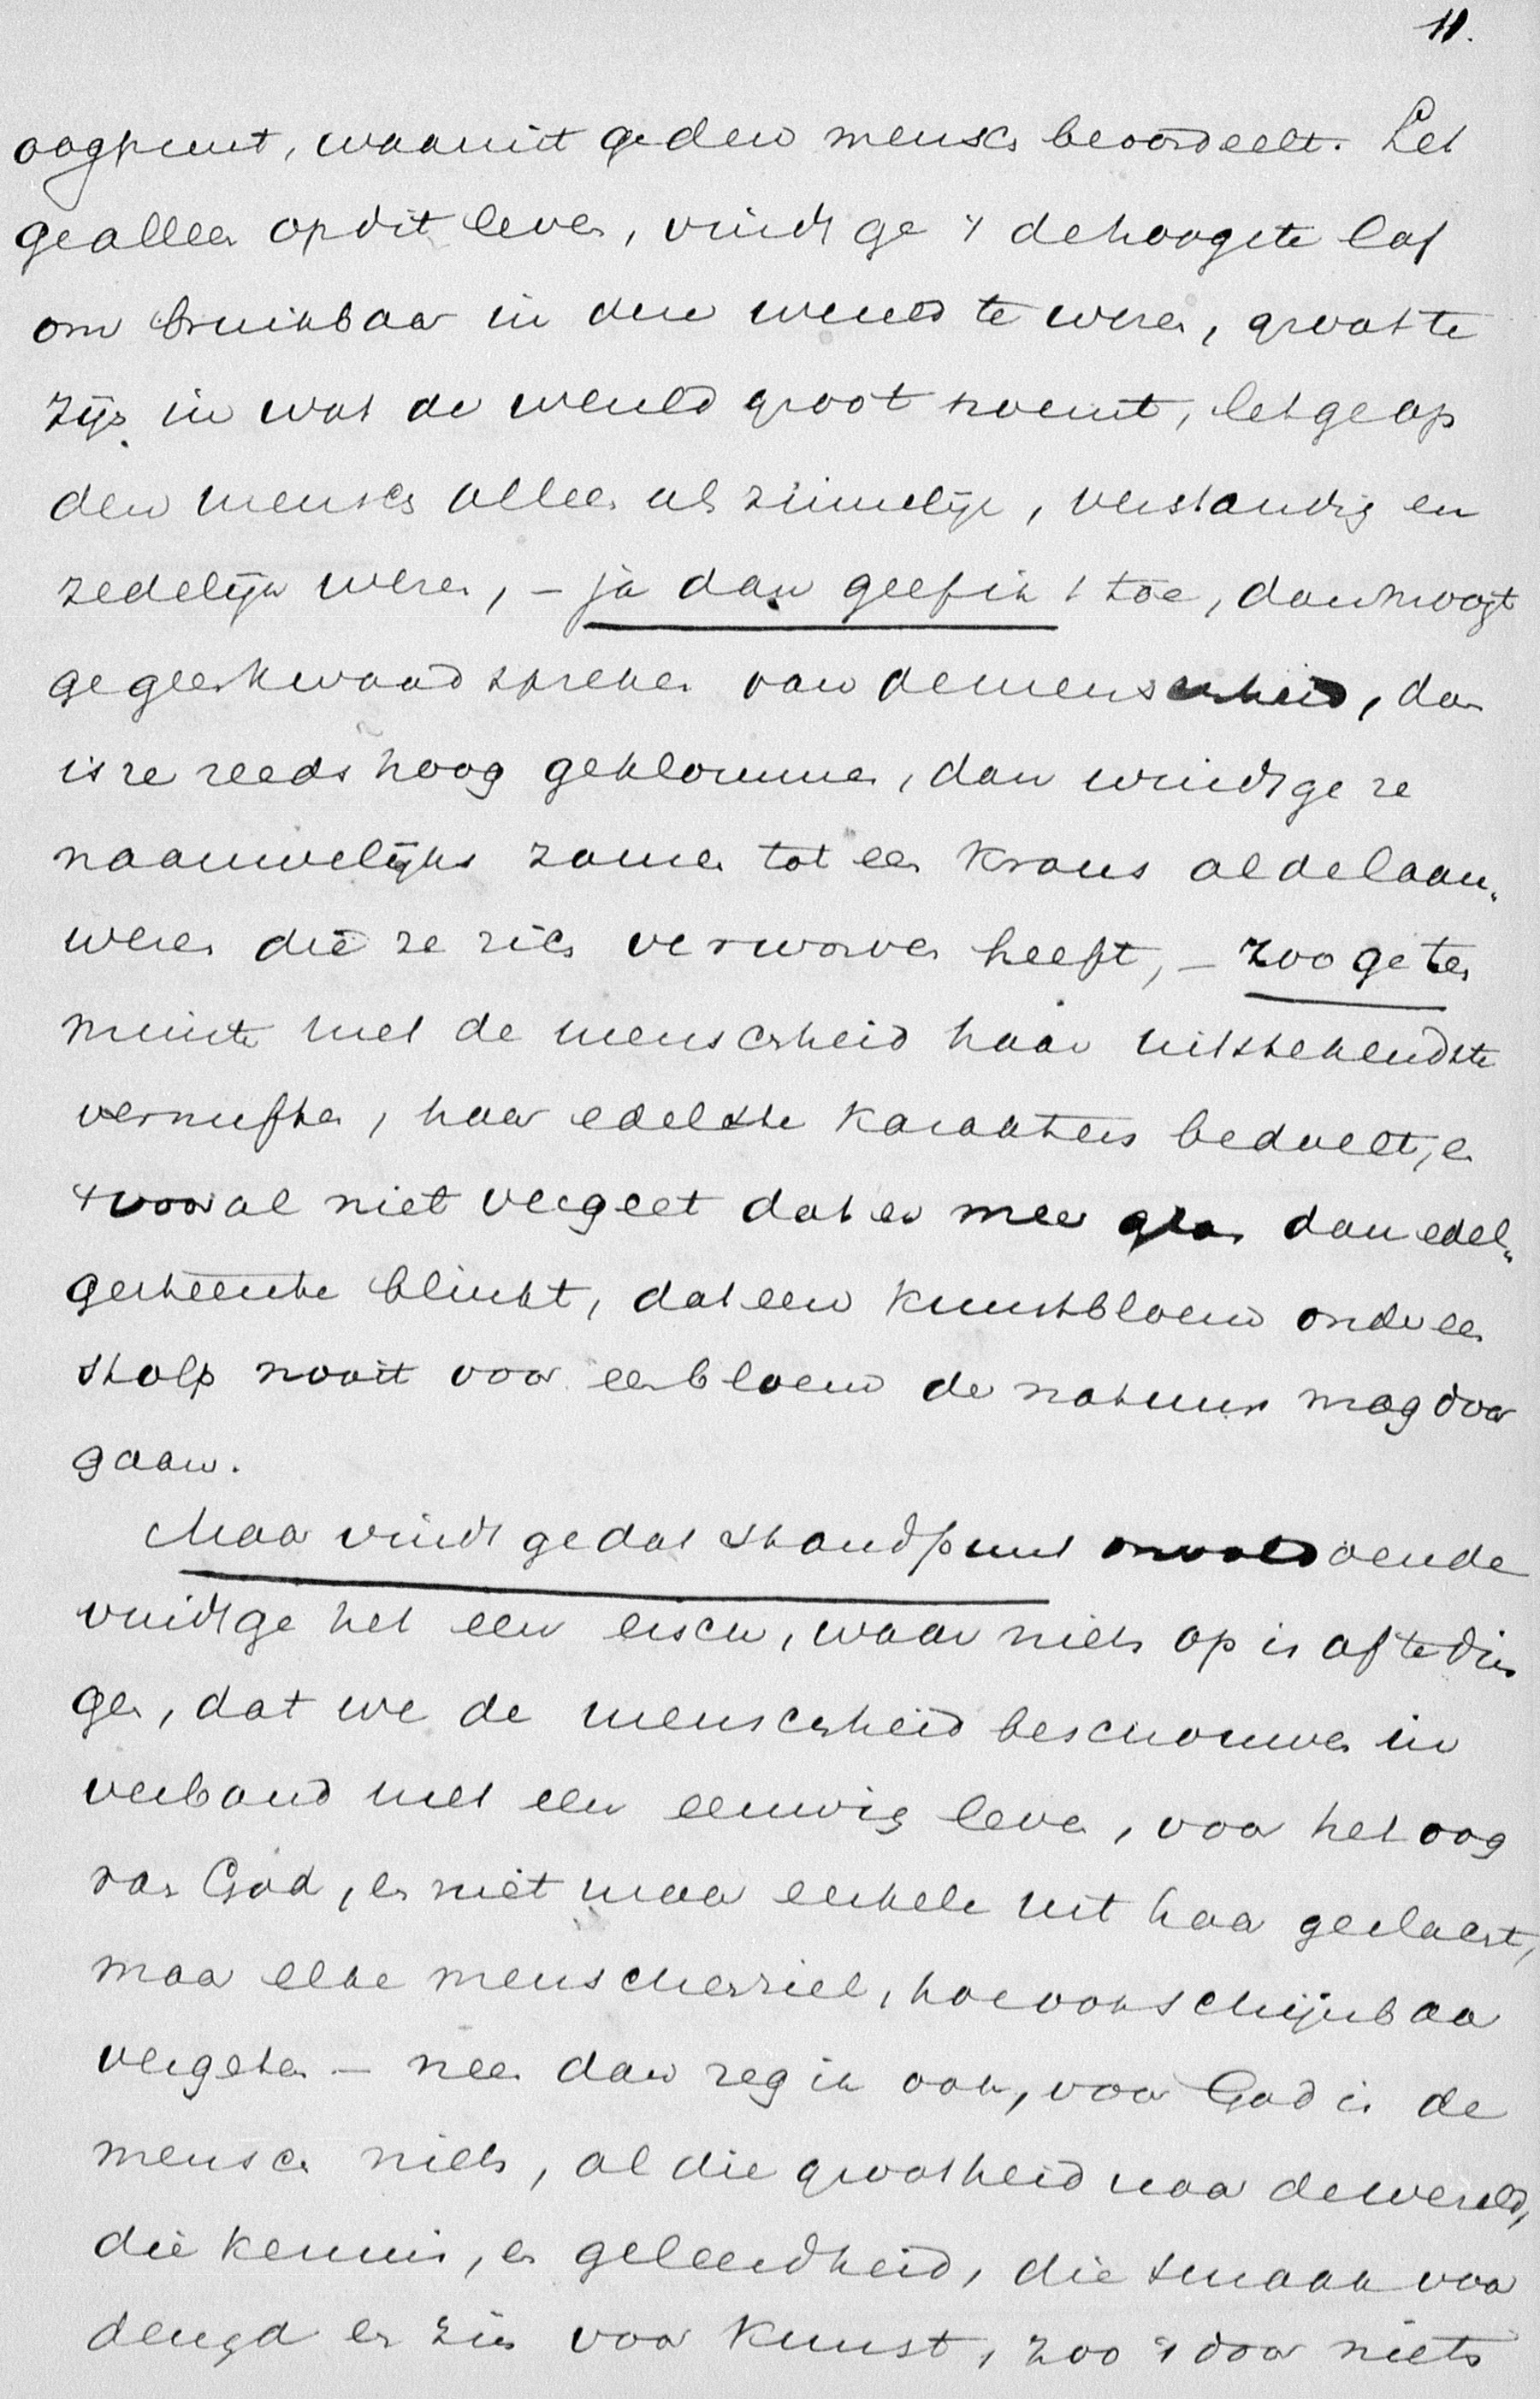 11.
oogpunt, waaruit ge den mensch beoordeelt. Let
ge alleen op dit leven, vindt ge 't de hoogste lof
om bruikbaar in deze wereld te wezen, groot te
zijn in wat de wereld groot noemt, let ge op
den mensch alleen als zinnelijk, verstandig en
zedelijk wezen, – ja dan geef ik 't toe, dan moogt
ge geen kwaad spreken van de menschheid, dan
is ze reeds hoog geklommen, dan windt ge ze
naauwelijks zamen tot een krans al de laau„
weren die ze zich verworven heeft, – zoo ge ten
minste met de menschheid haar uitstekendste
vernuften, haar edelste karakters bedoelt, en
't vooral niet vergeet dat er meer glas dan edel„
gesteente blinkt, dat een kunstbloem onder een
stolp nooit voor een bloem der natuur mag door
gaan.
Maar vindt ge dat standpunt onvoldoende
vindt ge het een eisch, waar niets op is af te din
gen, dat we de menschheid beschouwen in
verband met een eeuwig leven, voor het oog
van God, en niet maar enkele uit haar geslacht,
maar elke menschenziel, hoe ook schijnbaar
vergeten – neen dan zeg ik ook, voor God is de
mensch niets, al die grootheid naar de wereld,
die kennis, en geleerdheid, die smaak voor
deugd en zin voor kunst, zoo 't door niets